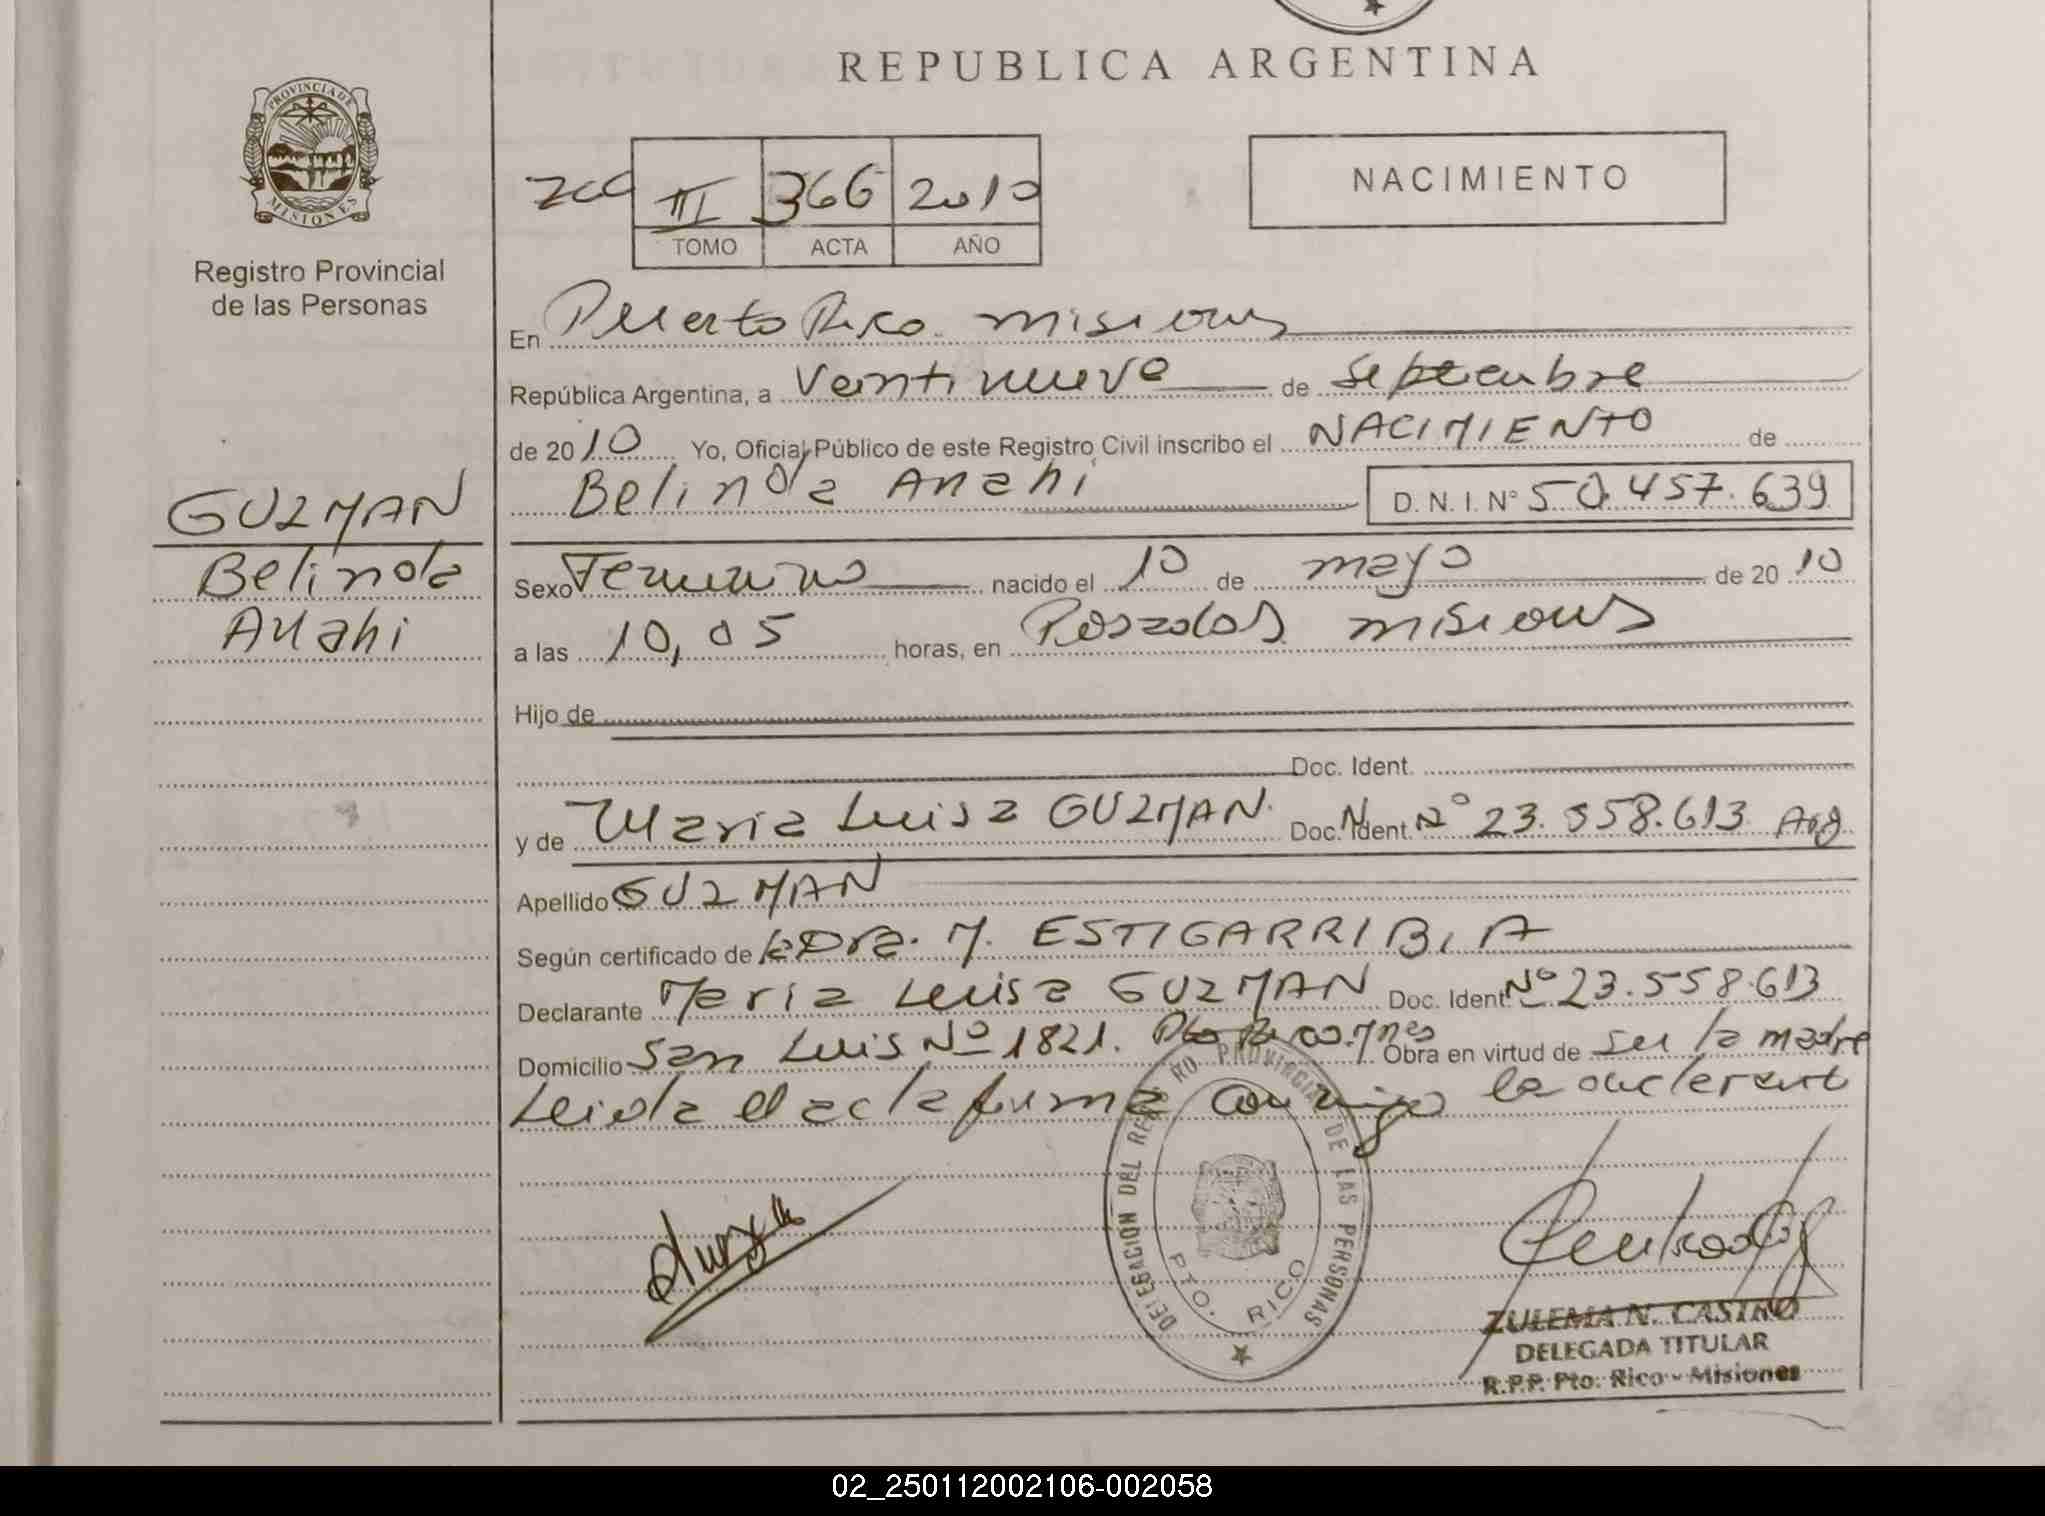 REPUBLICA ARGENTINA
PROVINCIA DE MISIONES
Registro Provincial
de las Personas
NACIMIENTO
III 366 2010
TOMO ACTA AÑO
En Puerto Rico. misiones
República Argentina, a Veintinueve de Septiembre
de 2010 Yo, Oficial Público de este Registro Civil inscribo el NACIMIENTO de
Belinda Anahi D. N. I. N° 50.457.639
GUZMAN
Belinda
Anahi
Sexo Femenino nacido el 10 de mayo de 2010
a las 10,05 horas, en Posadas misiones
Hijo de
Doc. Ident.
y de Maria Luisa GUZMAN. Doc. Ident. N° 23.558.613 Arg
Apellido GUZMAN
Según certificado de la Dra. M. ESTIGARRIBIA
Declarante Maria Luisa GUZMAN Doc. Ident. N° 23.558.613
Domicilio San Luis N° 1821. Pto Rico. Mnes Obra en virtud de ser la madre
Leida el acta firma conmigo la declarante
DELEGACIÓN DEL REGISTRO PROVINCIAL DE LAS PERSONAS
PTO. RICO
ZULEMA N. CASTRO
DELEGADA TITULAR
R.P.P. Pto. Rico - Misiones
02_250112002106-002058